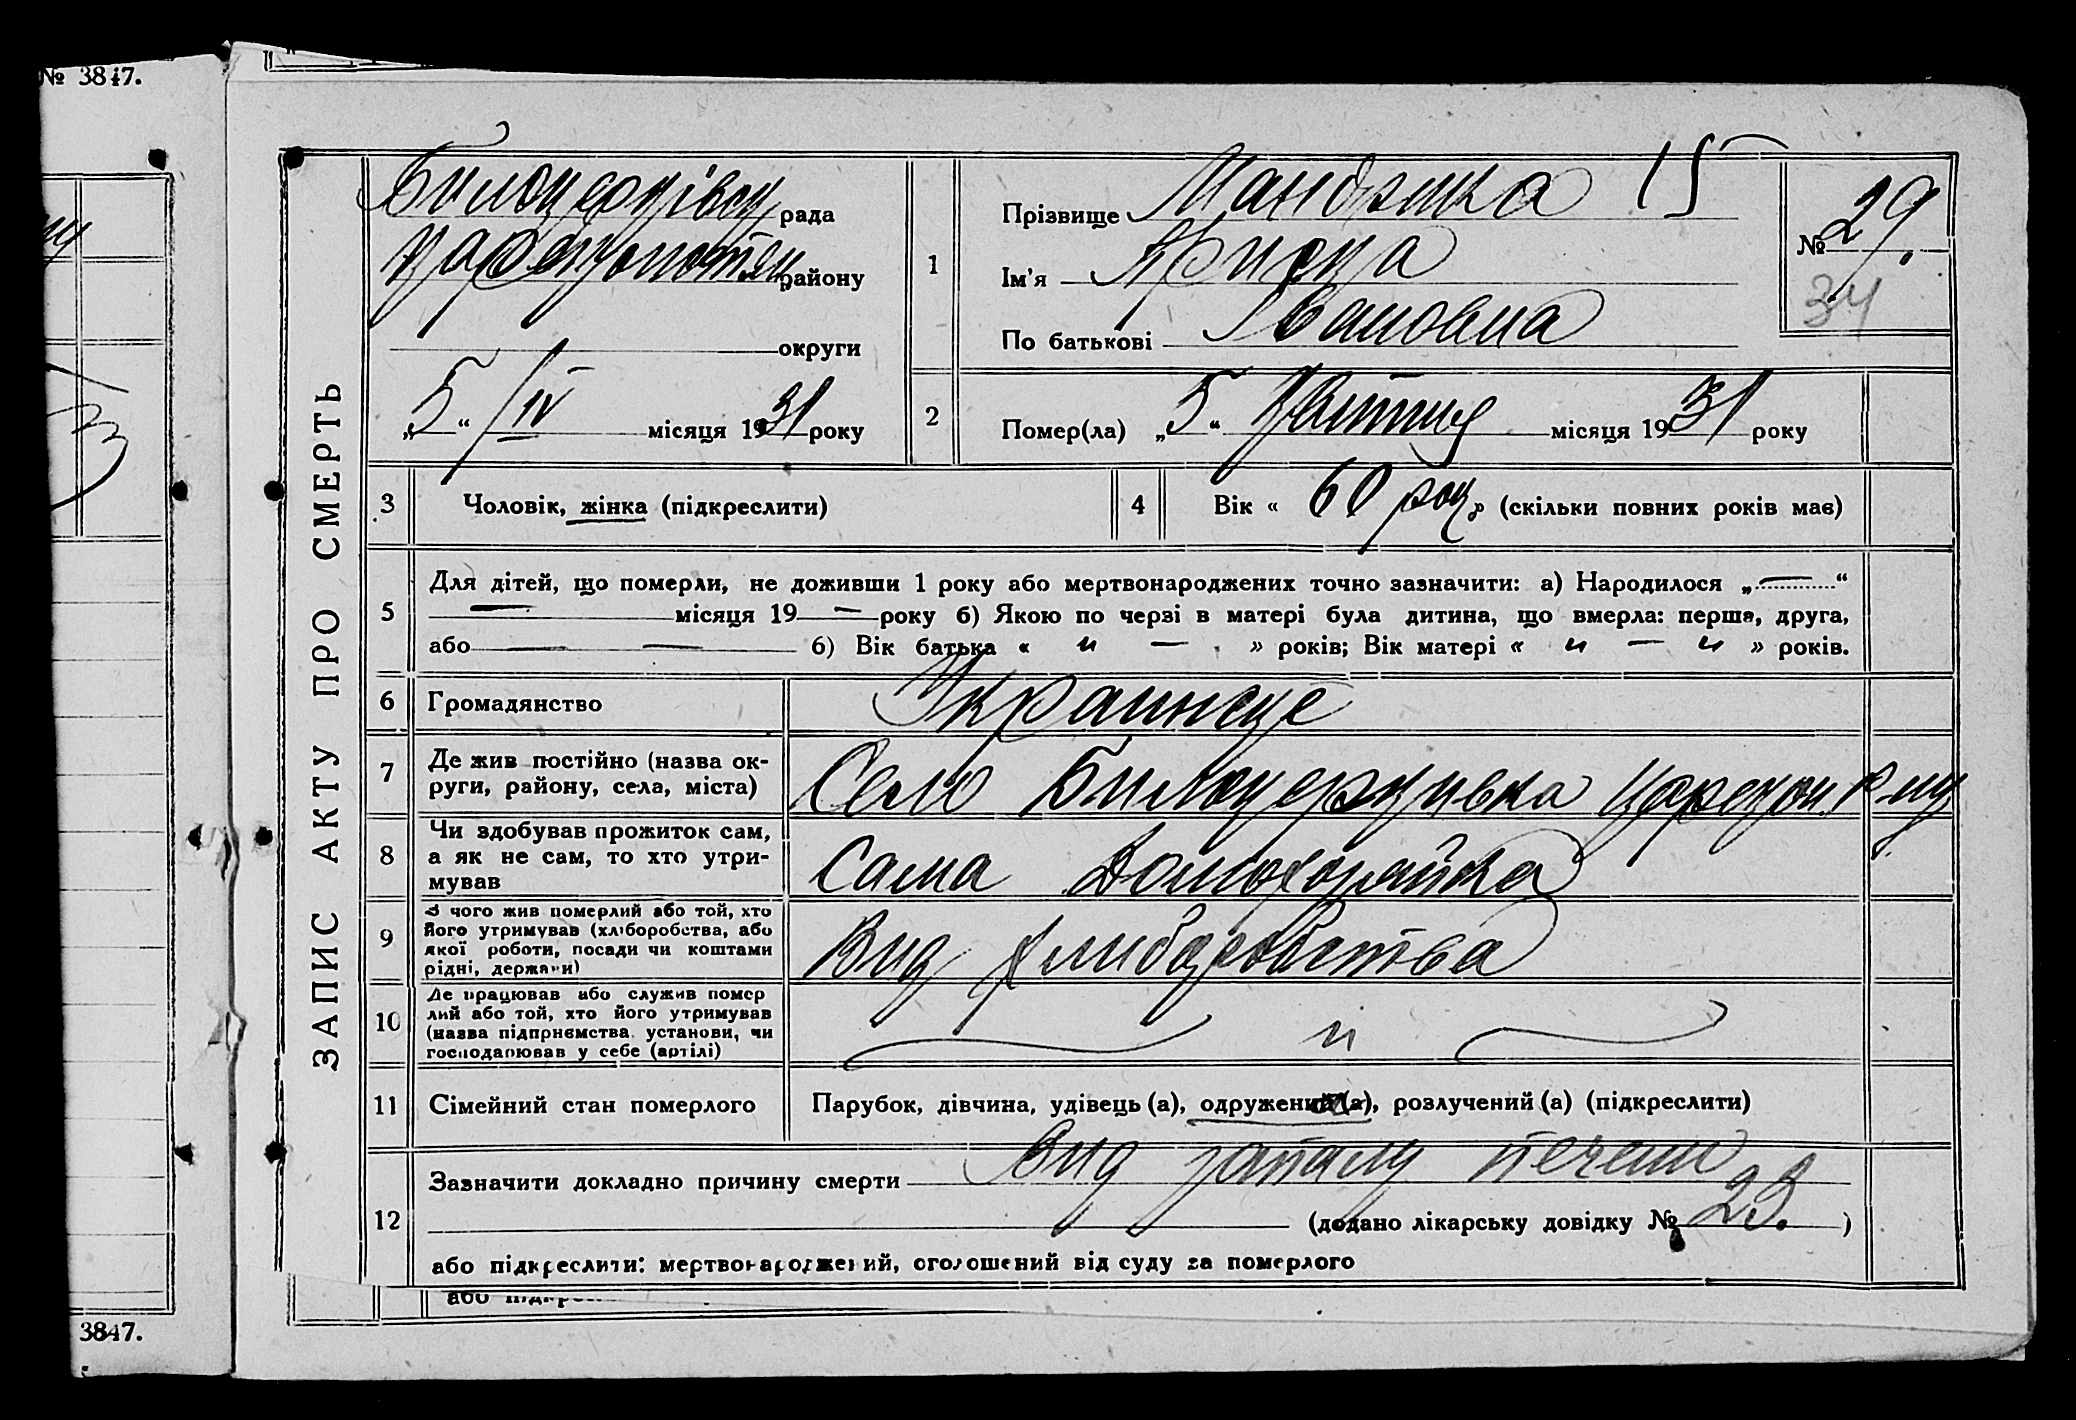 № 3847.
ЗАПИС АКТУ ПРО СМЕРТЬ
Билоцерківц рада
району
округи
„5“ /IV місяця 1931 року
1
Прізвище 15
Ім'я Приська
По батькові Івановна
№ 29.
34
2
Помер(ла) „5“ Квитня місяця 1931 року
3
Чоловік, жінка (підкреслити)
4
Вік « 60 рок » (скільки повних років має)
5
Для дітей, що померли, не доживши 1 року або мертвонароджених точно зазначити: а) Народилося „ — “
— місяця 19 — року б) Якою по черзі в матері була дитина, що вмерла: перша, друга,
або — — б) Вік батька « и — » років; Вік матері « и — и » років.
6
Громадянство
Украинске
7
Де жив постійно (назва ок-
руги, району, села, міста)
Село Билоцеркивка
8
Чи здобував прожиток сам,
а як не сам, то хто утри-
мував
Сама Домохозяйка
9
З чого жив померлий або той, хто
його утримував (хліборобства, або
якої роботи, посади чи коштами
рідні, держави)
Вид хлиборобства
10
Де працював або служив помер
лий або той, хто його утримував
(назва підприємства, установи, чи
господарював у себе (артілі)
— и —
11
Сімейний стан померлого
Парубок, дівчина, удівець (а), одружений (а), розлучений (а) (підкреслити)
12
Зазначити докладно причину смерти Вид запалу печени
(додано лікарську довідку № 29. )
або підкреслити: мертвонароджений, оголошений від суду за померлого
або підкре
3847.